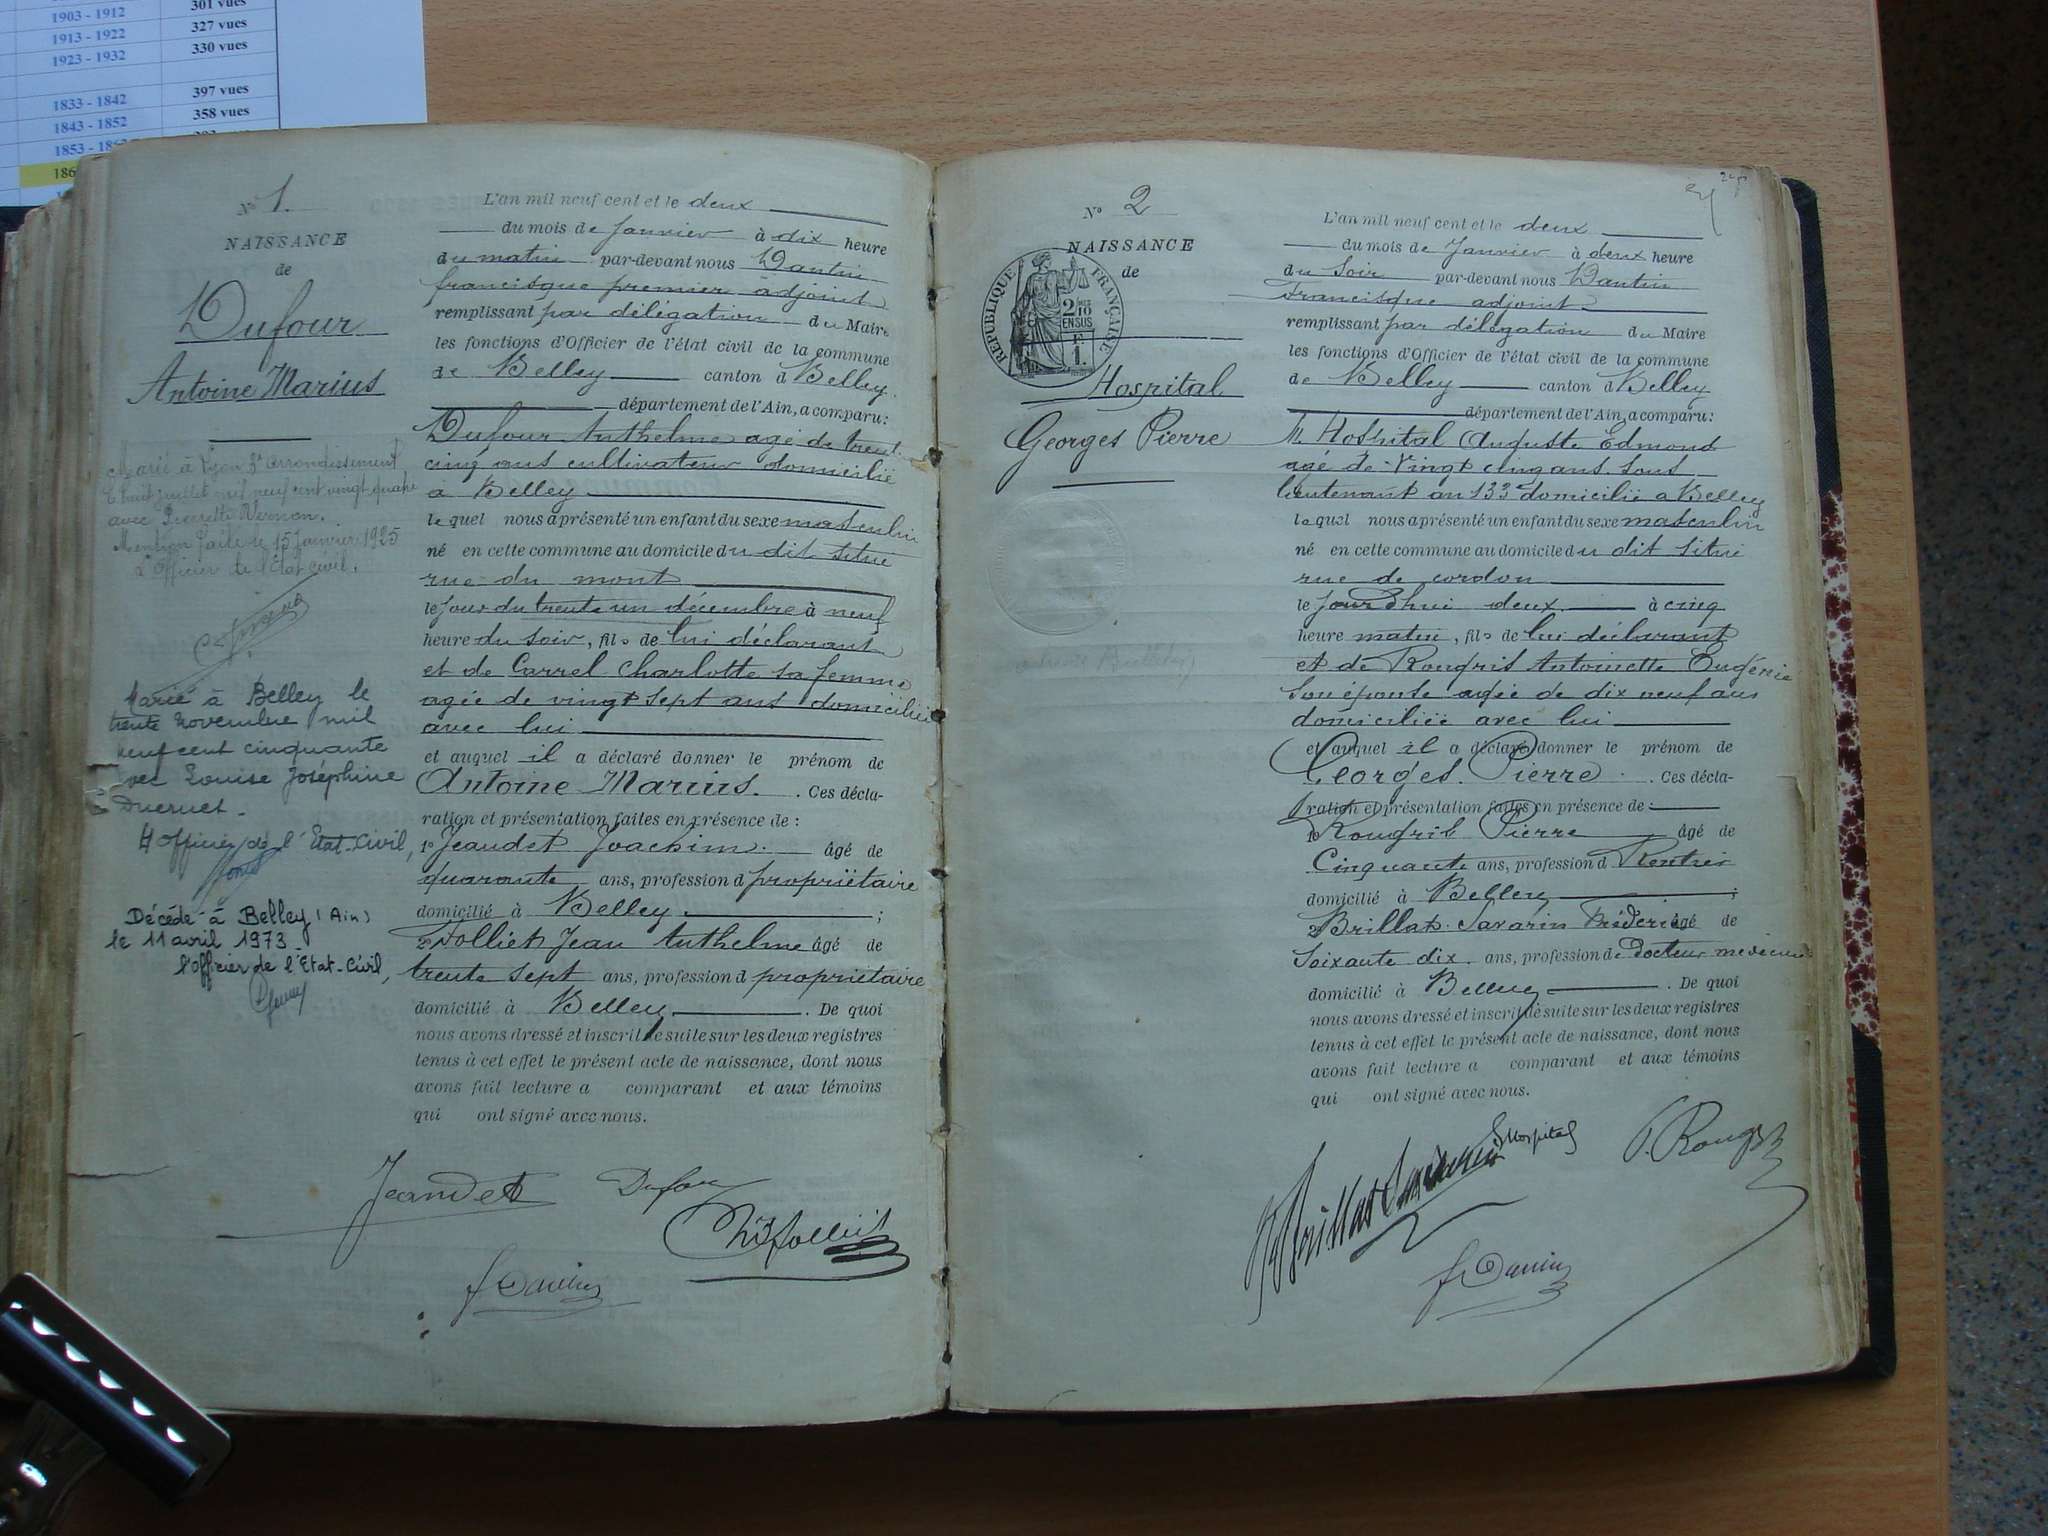 301 vues
1903 - 1912
327 vues
1913 - 1922
330 vues
1923 - 1932
397 vues
1833 - 1842
358 vues
1843 - 1852
1853 - 
186
N° 1.
NAISSANCE
de
Dufour
Antoine Marius
Marié à Lyon 3e arrondissement,
le huit juillet mil neuf cent vingt quatre
avec Pierrette Vernon.
Mention faite le 15 Janvier 1925
L'Officier de l'Etat civil.
Marié à Belley le
trente Novembre mil
neuf cent cinquante
avec Louise Joséphine
Ducruet.
L'Officier de l'Etat-Civil,
Décédé à Belley (Ain)
le 11 avril 1973.
l'Officier de l'Etat-Civil,
L'an mil neuf cent et le deux
du mois de Janvier à dix heure
du matin par-devant nous Dantin
francisque premier adjoint
remplissant par délégation du Maire
les fonctions d'Officier de l'état civil de la commune
de Belley canton d Belley
département de l'Ain, a comparu:
Dufour Anthelme agé de trent
cinq ans cultivateur domicilié
à Belley
lequel nous a présenté un enfant du sexe masculin
né en cette commune au domicile du dit situé
rue du mont
le jour du trente un décembre à neuf
heure du soir, fils de lui déclarant
et de Carrel Charlotte sa femme
agée de vingt sept ans domiciliée
avec lui
et auquel il a déclaré donner le prénom de
Antoine Marius. Ces décla-
ration et présentation faites en présence de :
1° Jeandet Joachim âgé de
quarante ans, profession d propriétaire
domicilié à Belley ;
2° Folliet Jean Anthelme âgé de
trente sept ans, profession d propriétaire
domicilié à Belley. De quoi
nous avons dressé et inscrit de suite sur les deux registres
tenus à cet effet le présent acte de naissance, dont nous
avons fait lecture a comparant et aux témoins
qui ont signé avec nous.
Jeandet Dufour
Folliet
f Dantin
N° 2
NAISSANCE
de
REPUBLIQUE FRANÇAISE
2/10
EN SUS
1.
Hospital
Georges Pierre
L'an mil neuf cent et le deux
du mois de Janvier à deux heure
du Soir par-devant nous Dantin
Francisque adjoint
remplissant par délégation du Maire
les fonctions d'Officier de l'état civil de la commune
de Belley canton d Belley
département de l'Ain, a comparu:
M. Hospital Auguste Edmond
agé de Vingt cinq ans Sous
lieutenant au 133e domicilié a Belley
lequel nous a présenté un enfant du sexe masculin
né en cette commune au domicile du dit situé
rue de cordon
le jourd'hui deux à cinq
heure matin, fils de lui déclarant
et de Rougris Antoinette Eugénie
Son épouse agée de dix neuf ans
domiciliée avec lui
et auquel il a déclaré donner le prénom de
Georges Pierre. Ces décla-
ration et présentation faites en présence de :
1° Pierre âgé de
Cinquante ans, profession d Rentier
domicilié à Belley ;
2° Brillat-Savarin Fréderic âgé de
Soixante dix ans, profession de Docteur médecin
domicilié à Belley. De quoi
nous avons dressé et inscrit de suite sur les deux registres
tenus à cet effet le présent acte de naissance, dont nous
avons fait lecture a comparant et aux témoins
qui ont signé avec nous.
Hospital
Brillat Savarin
f Dantin